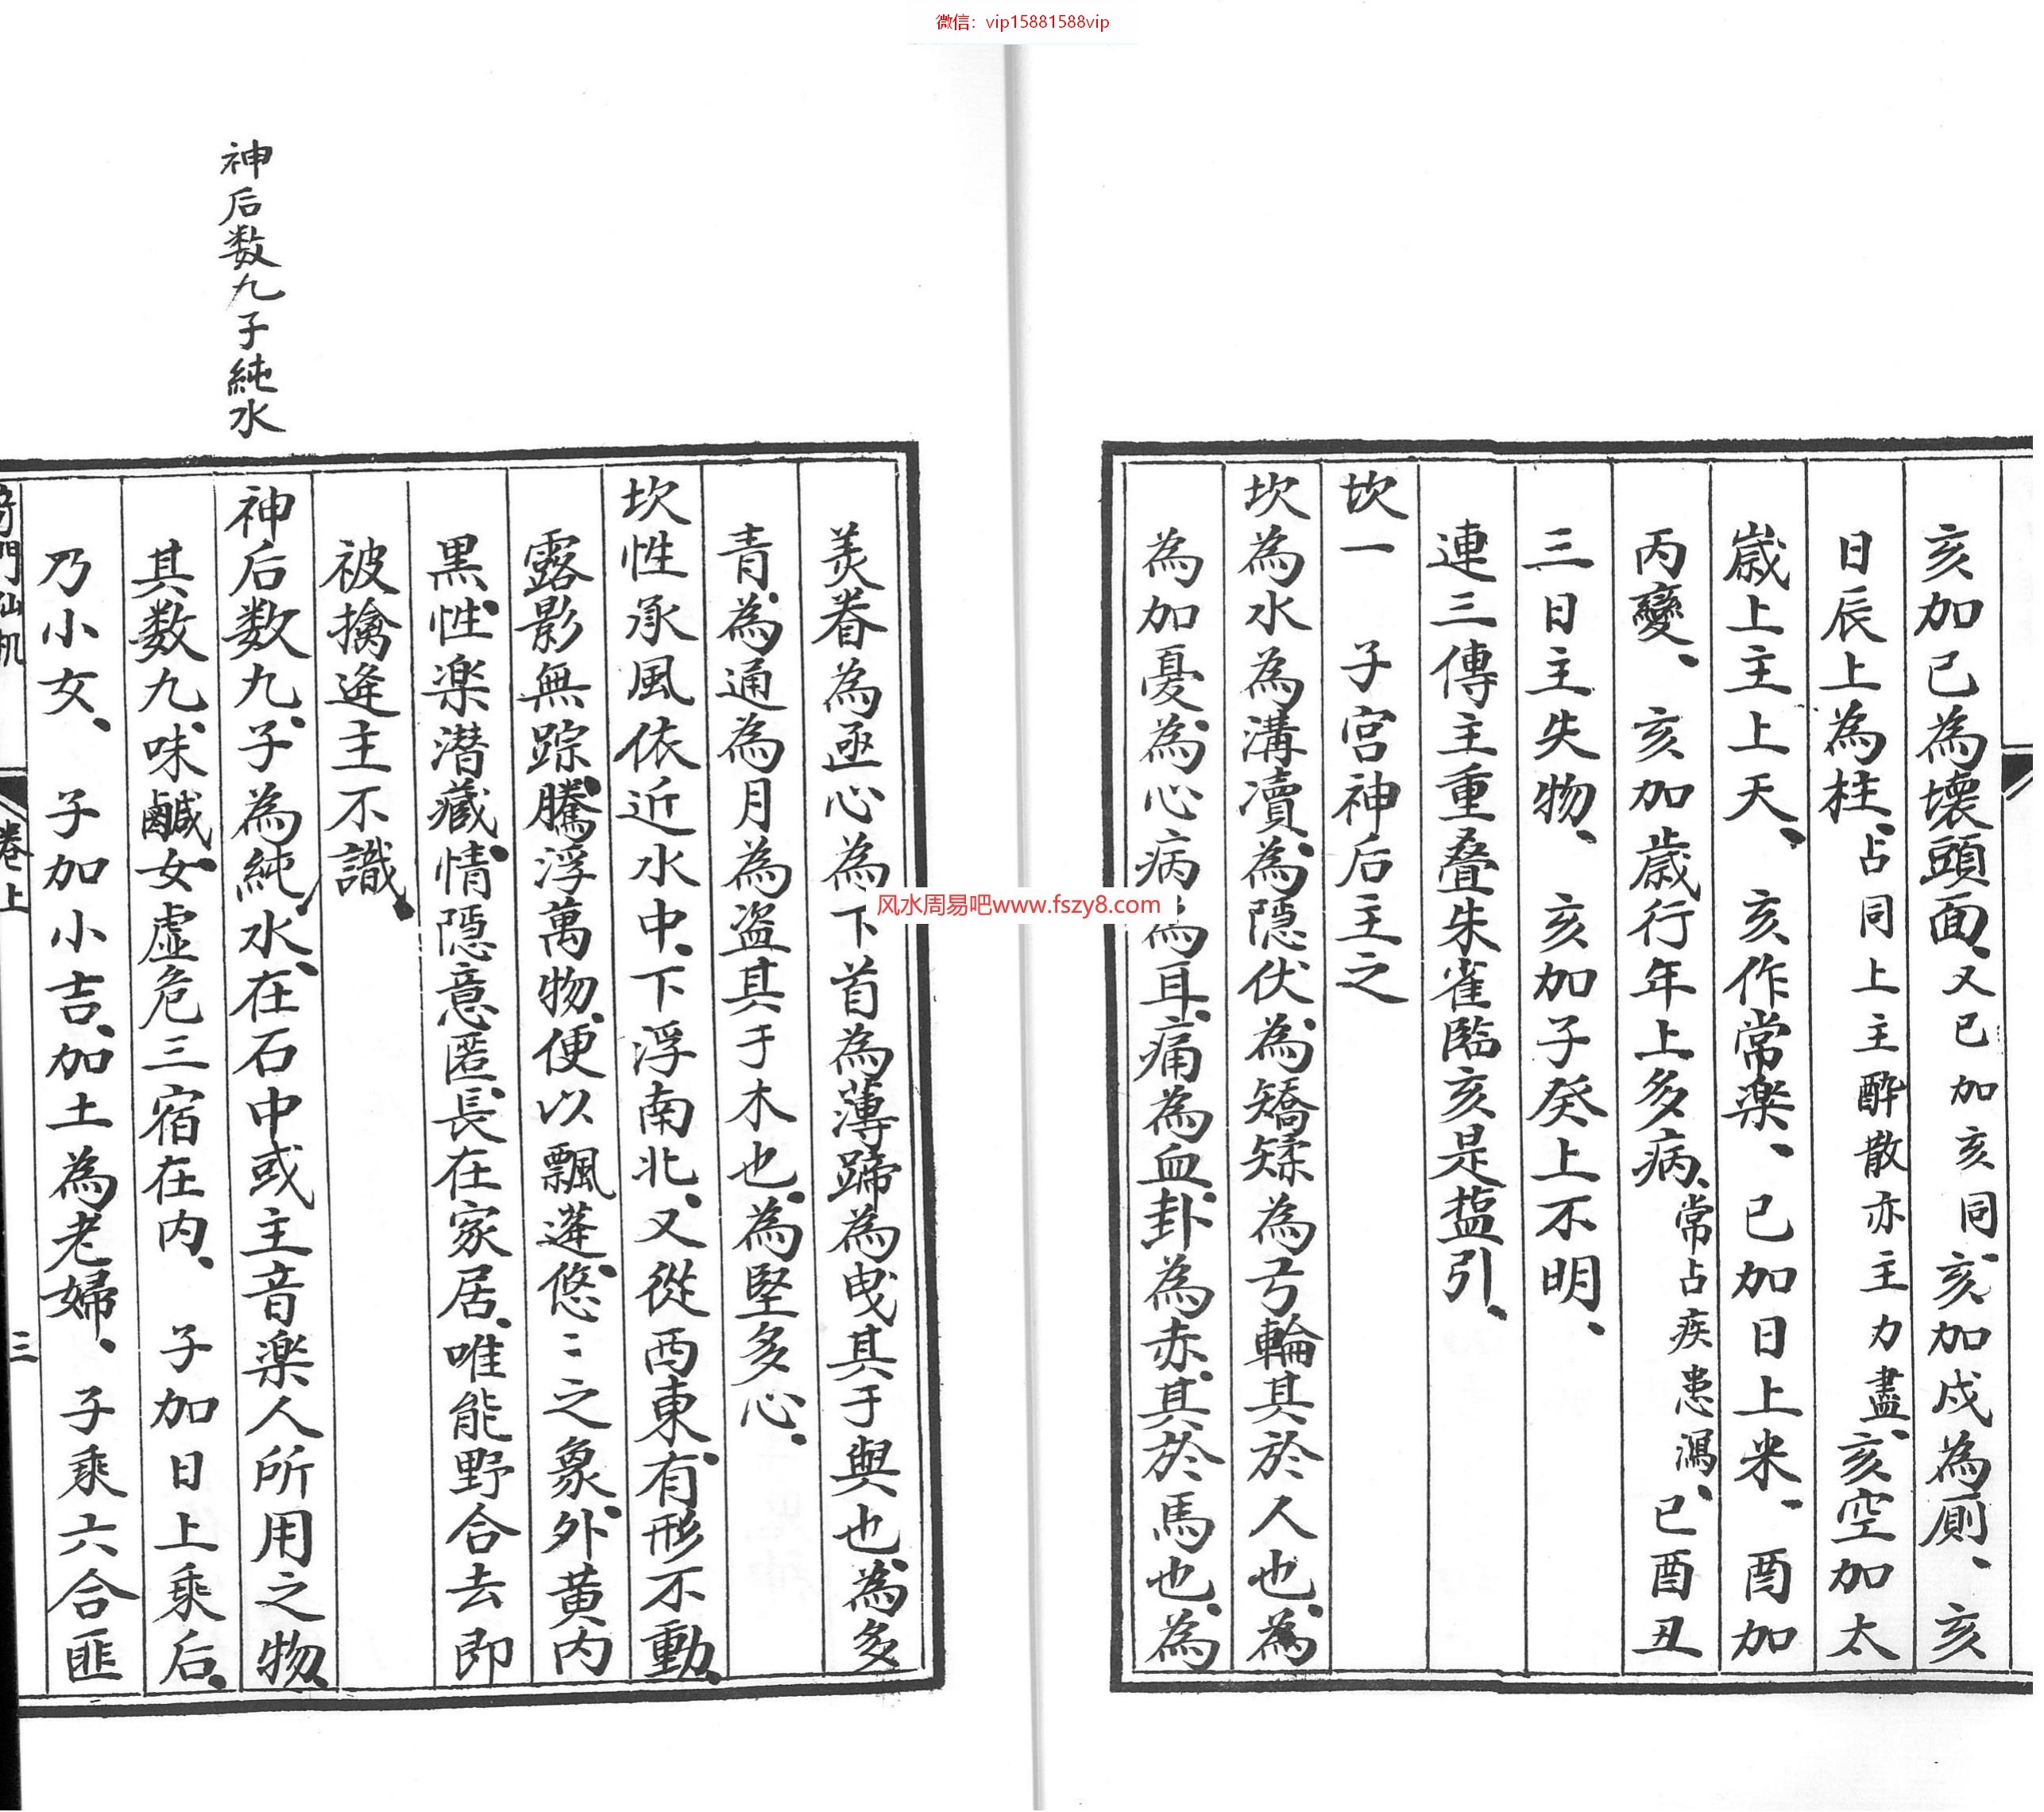 微信：vip15881588vip
亥加已為壞頭面、又已加亥同、亥加戍為厠、亥
日辰上為柱、占同上主酔散亦主力盡、亥空加太
歲上主上天、亥作常楽、已加日上米、酉加
丙變、亥加歲行年上多病、常占疾患瀉、已酉丑
三日主失物、亥加子癸上不明、
連三傳主重叠朱雀臨亥是塩引、
坎一　子宮神后主之
坎為水為溝瀆、為隠伏、為矯矮為弓輪其於人也、為
為加憂、為心病為耳痛為血卦、為赤、其於馬也、為
风水周易吧www.fszy8.com
美脊為亟心為下首為薄蹄為曳其于輿也、為多
青、為通為月為盗其于木也、為堅多心、
坎性承風依近水中、下浮南北、又從西東、有形不動、
露影無踪、騰浮萬物、便以飄蓬、悠〻之象、外黄内
黒、性楽潜藏、情隠意匿、長在家居、唯能野合去即
被擒逄主不識、
神后数九、子為純水、在石中或主音楽人所用之物、
其数九、味鹹、女虚危三宿在内、子加日上乘后、
乃小女、子加小吉、加土為老婦、子乘六合匪
神后数九子純水
奇門仙机　卷上　三